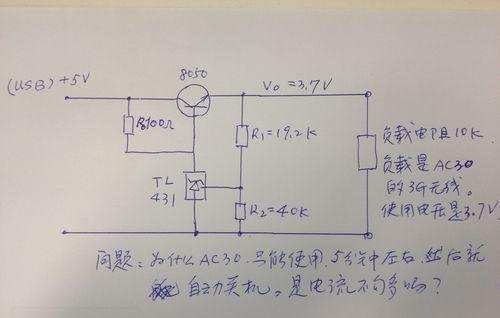 8050
(USB) +5V
Vo = 3.7V
R100Ω
R1=19.2K
负载电阻10K
负载是AC30
的3G无线。
使用电压是3.7V
TL
431
R2=40K
问题:为什么AC30.只能使用.5分钟左右.然后就
自动关机。是电流不够吗?